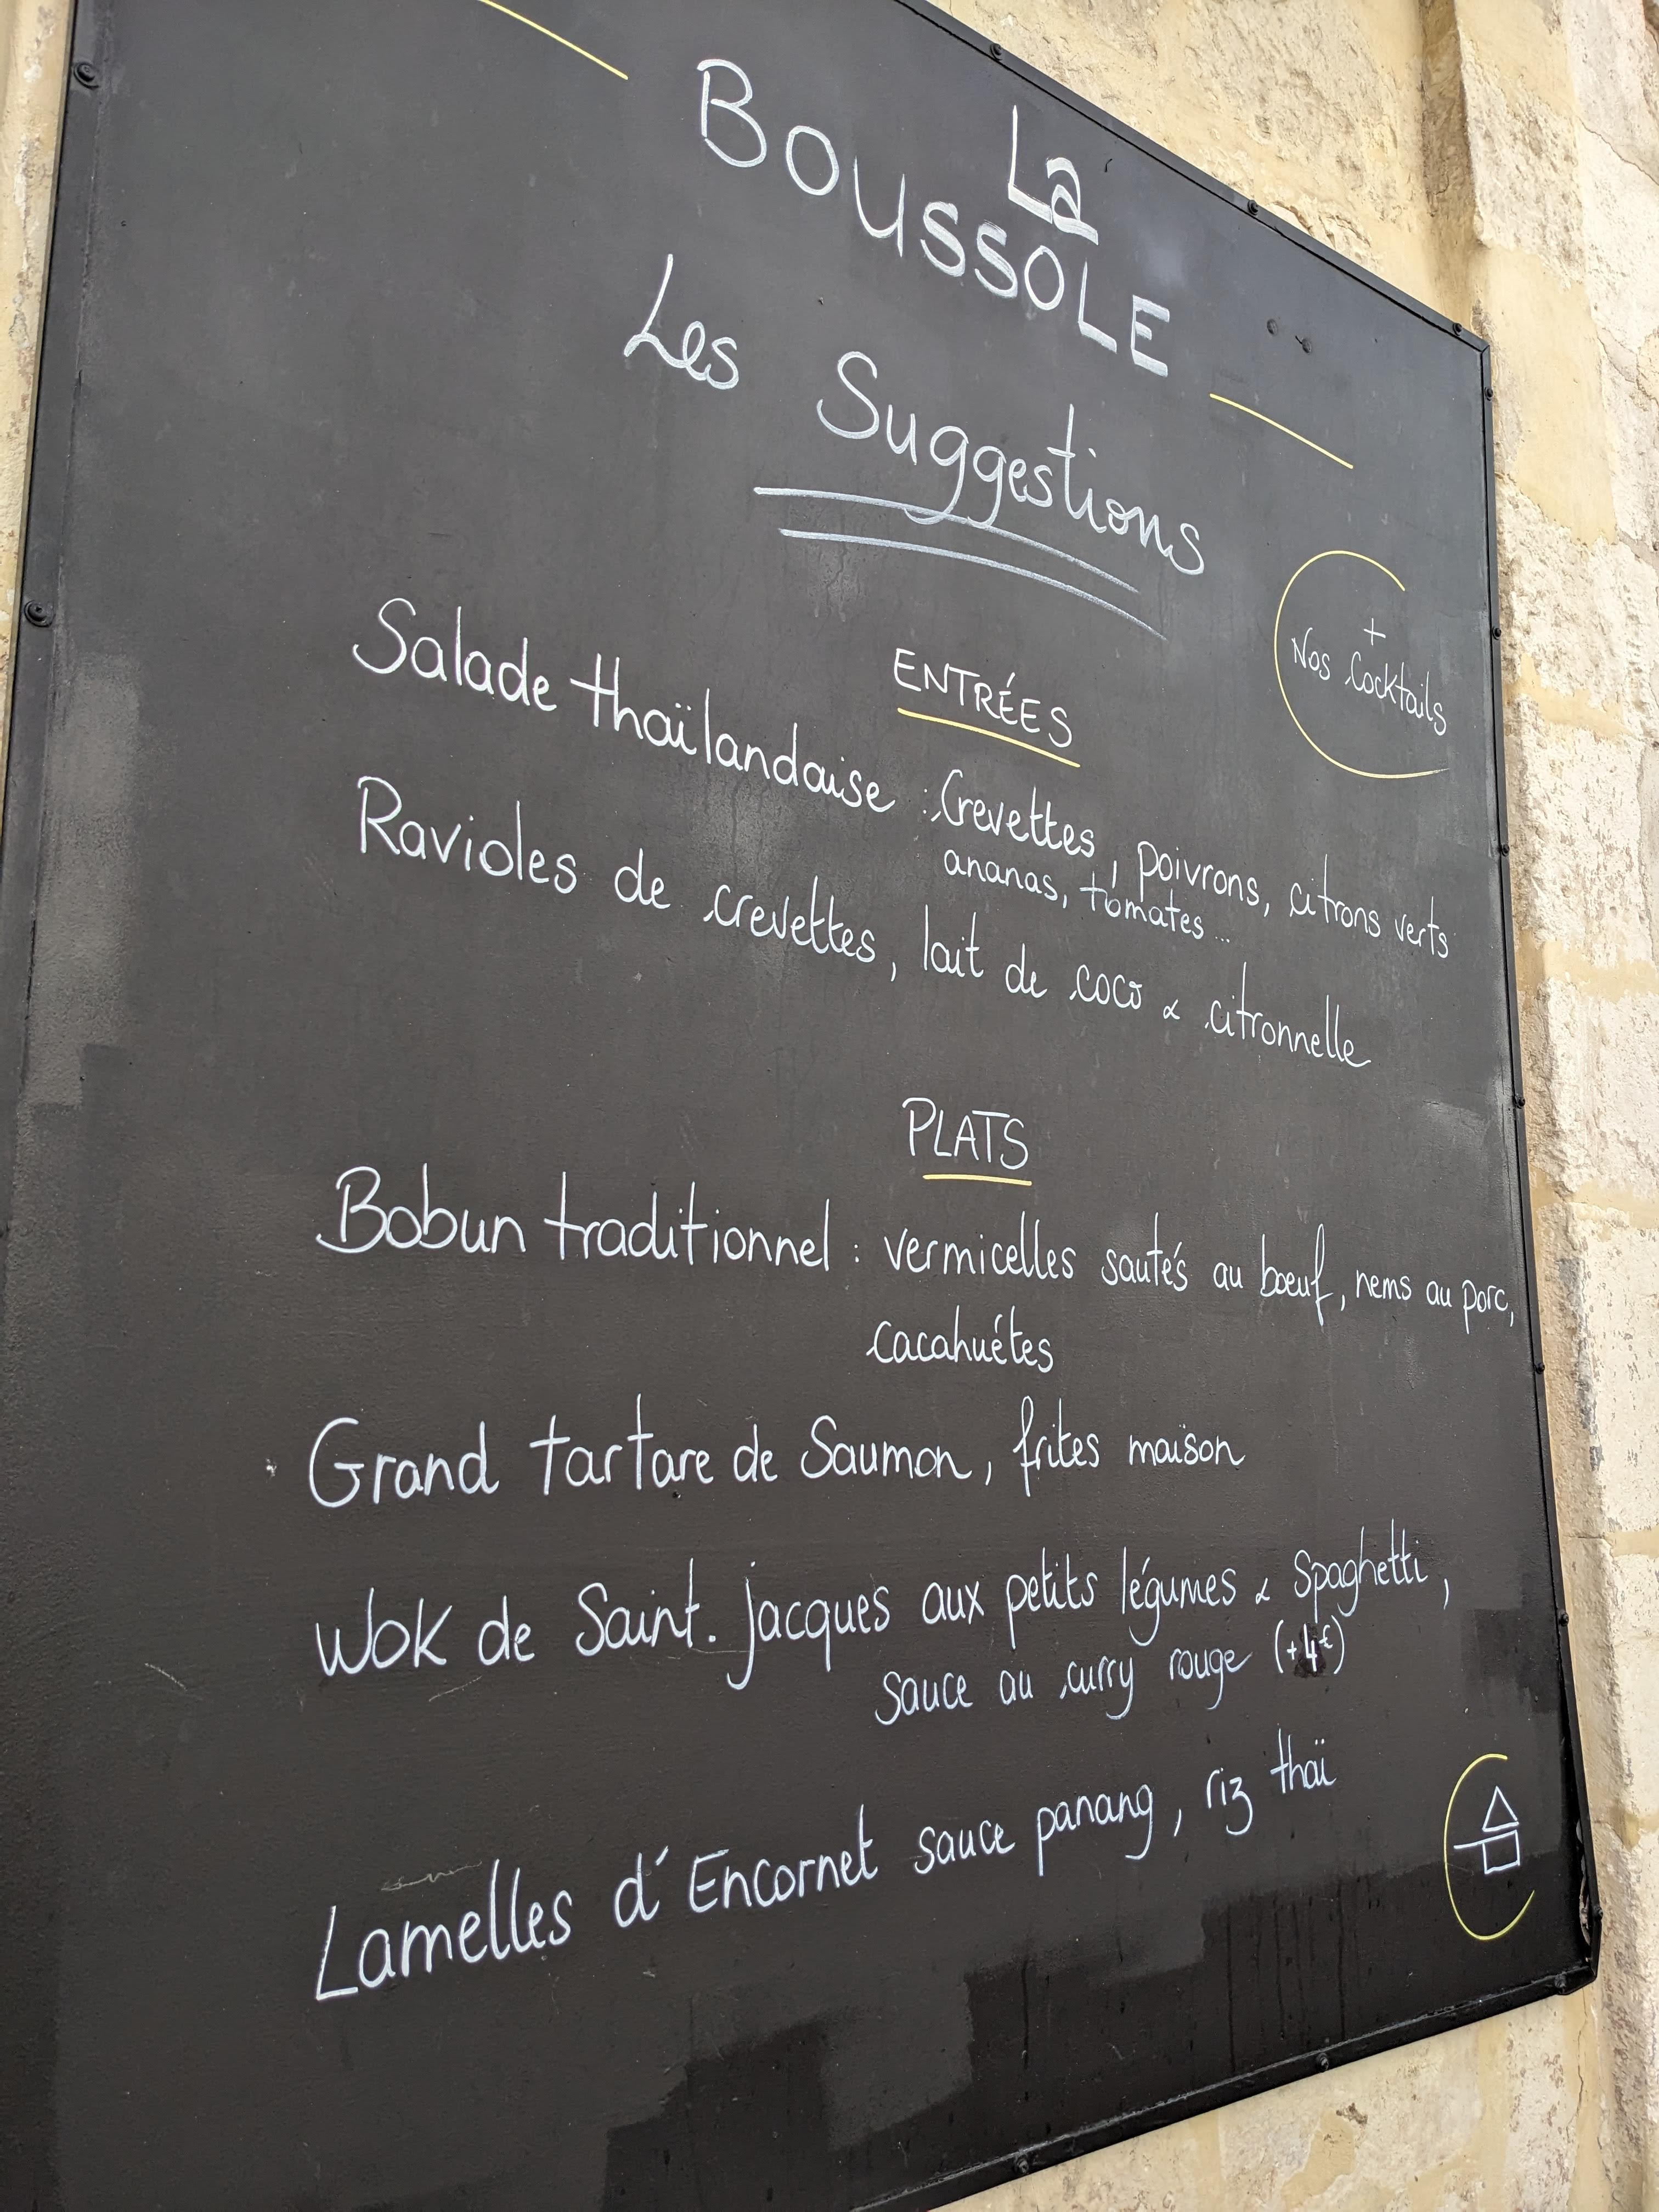 La
BOUSSOLE
Les Suggestions
+
Nos Cocktails
ENTRÉES
Salade thaïlandaise : Crevettes, poivrons, citrons verts
ananas, tomates...
Ravioles de crevettes, lait de coco & citronnelle
PLATS
Bobun traditionnel : vermicelles sautés au bœuf, nems au porc,
cacahuétes
Grand tartare de Saumon, frites maison
Wok de Saint.jacques aux petits légumes & Spaghetti,
sauce au curry rouge (+4€)
Lamelles d'Encornet sauce panang, riz thaï